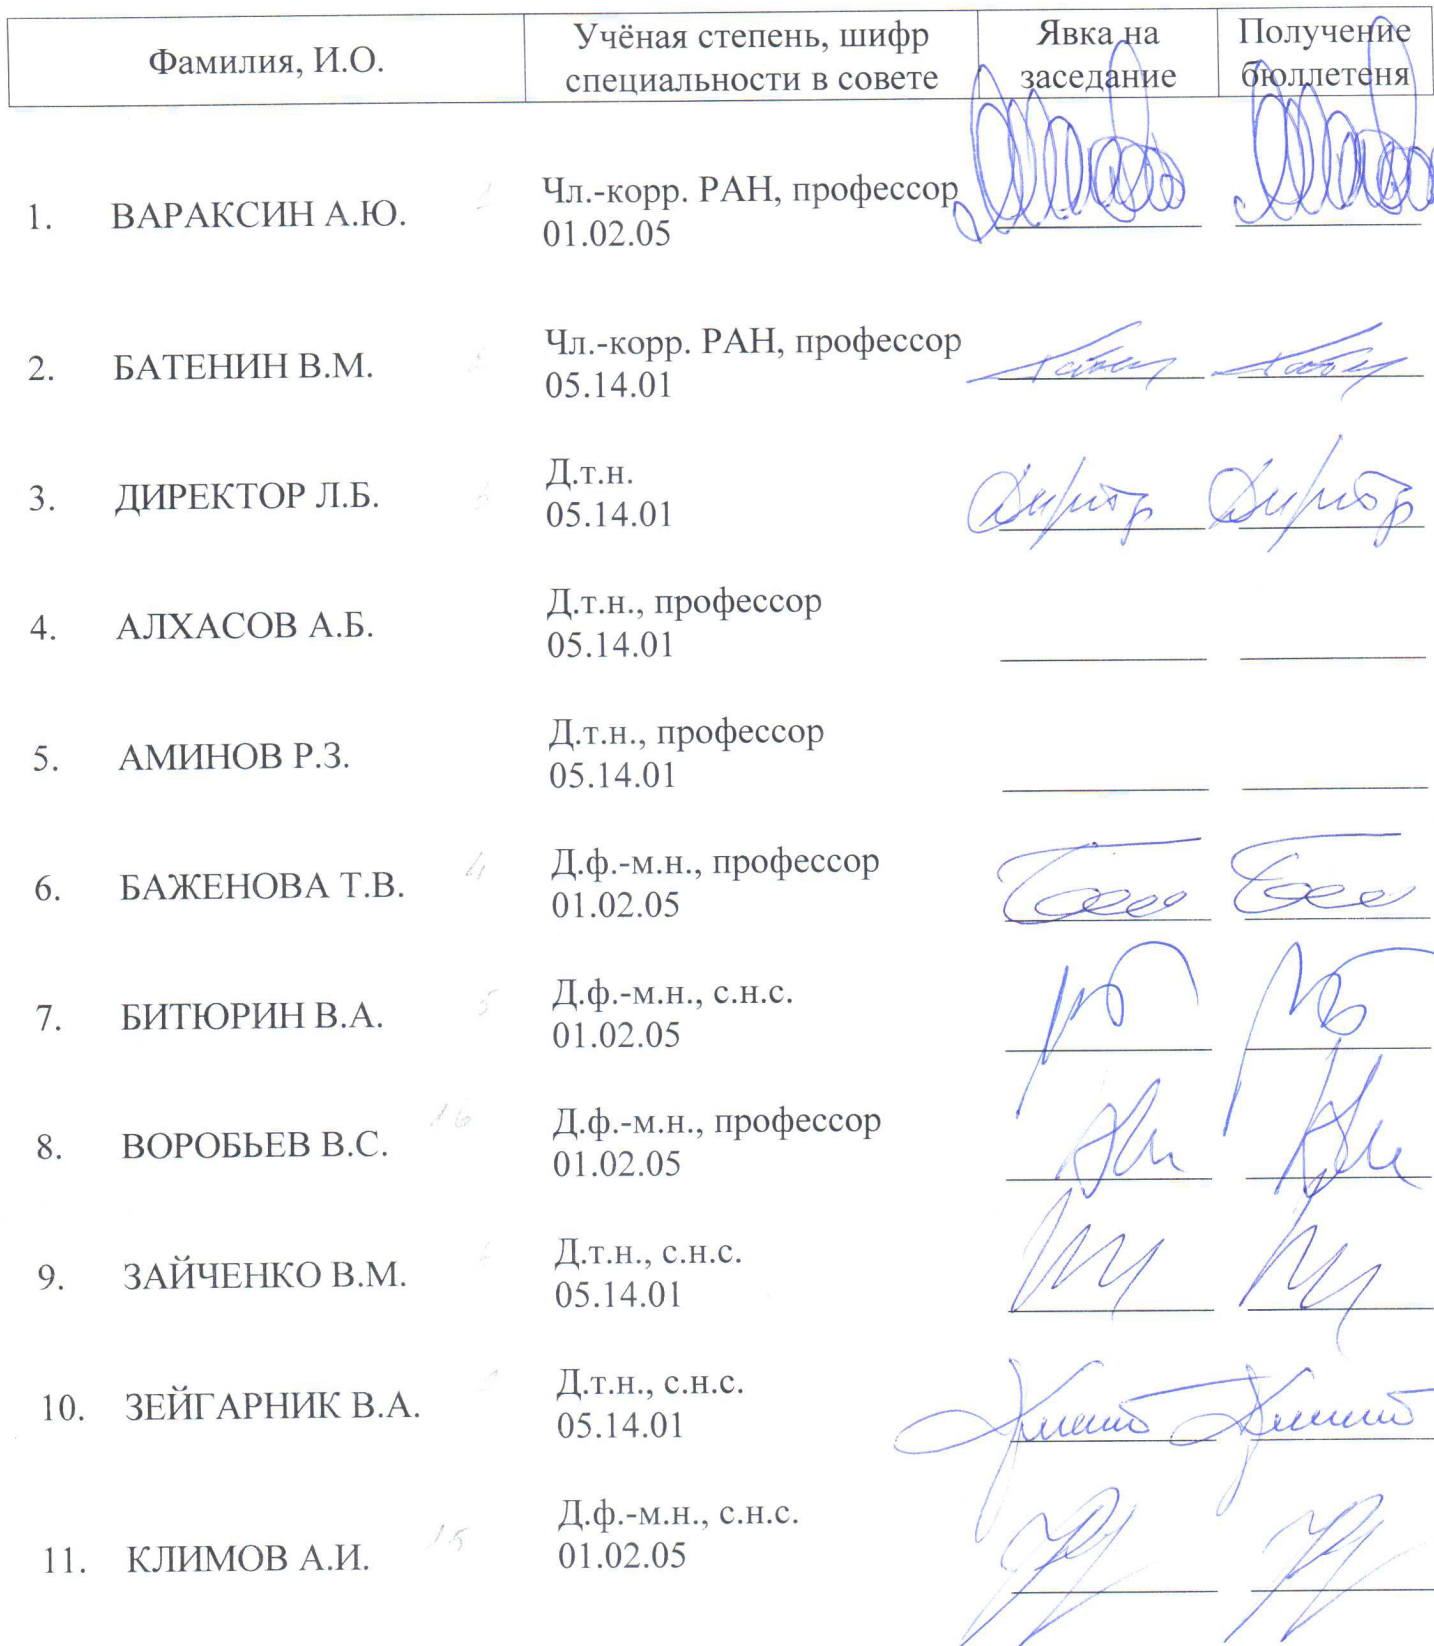 Фамилия, И.О.
Учёная степень, шифр
специальности в совете
Явка на
заседание
Получение
бюллетеня
1. ВАРАКСИН А.Ю.
Чл.-корр. РАН, профессор
01.02.05
2. БАТЕНИН В.М.
Чл.-корр. РАН, профессор
05.14.01
3. ДИРЕКТОР Л.Б.
Д.т.н.
05.14.01
4. АЛХАСОВ А.Б.
Д.т.н., профессор
05.14.01
5. АМИНОВ Р.З.
Д.т.н., профессор
05.14.01
6. БАЖЕНОВА Т.В. 4
Д.ф.-м.н., профессор
01.02.05
7. БИТЮРИН В.А. 5
Д.ф.-м.н., с.н.с.
01.02.05
8. ВОРОБЬЕВ В.С. 16
Д.ф.-м.н., профессор
01.02.05
9. ЗАЙЧЕНКО В.М.
Д.т.н., с.н.с.
05.14.01
10. ЗЕЙГАРНИК В.А.
Д.т.н., с.н.с.
05.14.01
11. КЛИМОВ А.И. 15
Д.ф.-м.н., с.н.с.
01.02.05